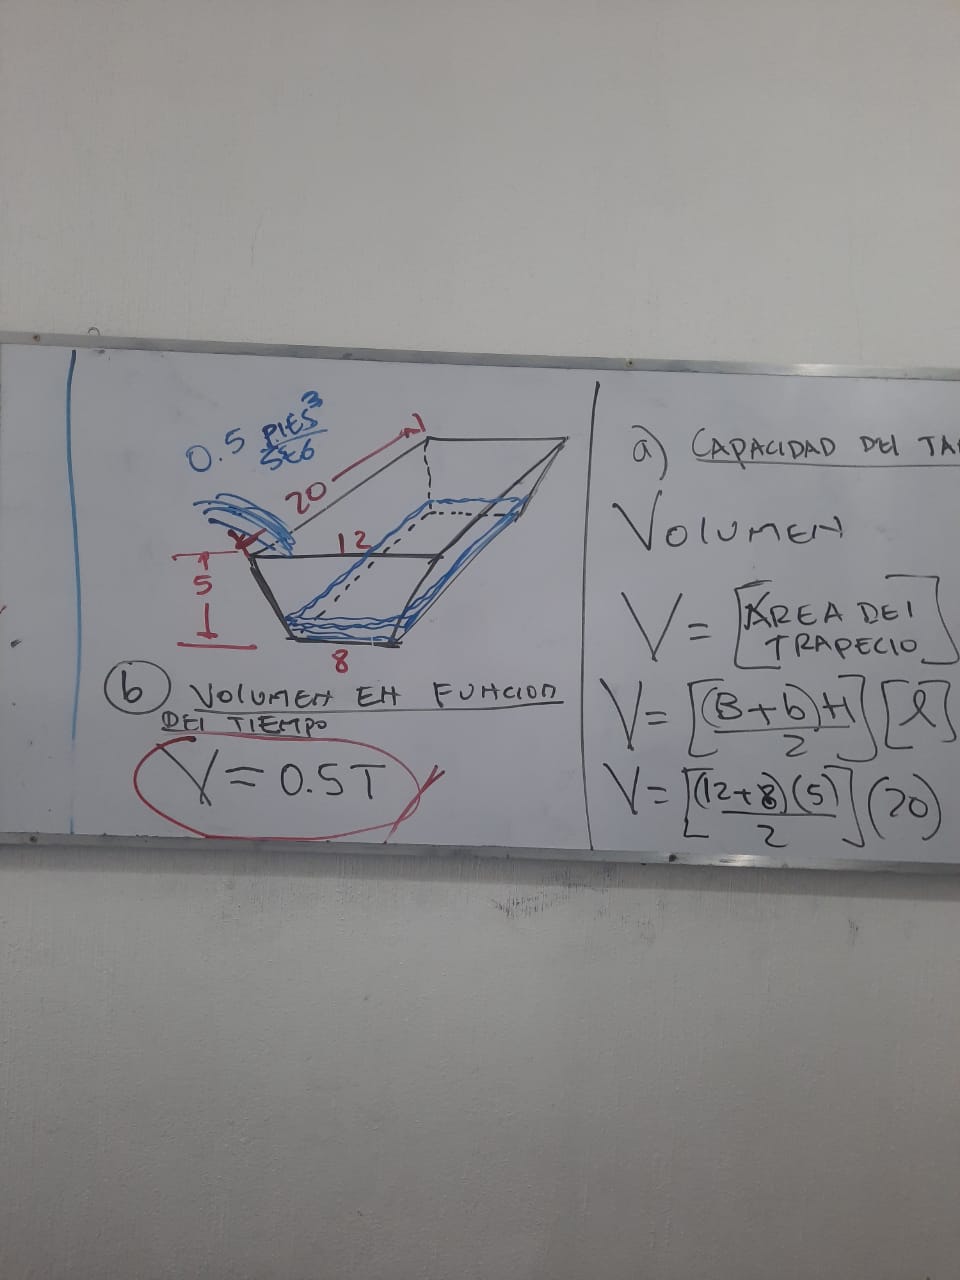 0.5 PIES³/SEG
20
12
5
8
b VOLUMEN EN FUNCION
DEL TIEMPO
V = 0.5T
a) CAPACIDAD DEL
VOLUMEN
V = [ÁREA DEL TRAPECIO]
V = [(B+b)H/2][l]
V = [(12+8)(5)/2](20)